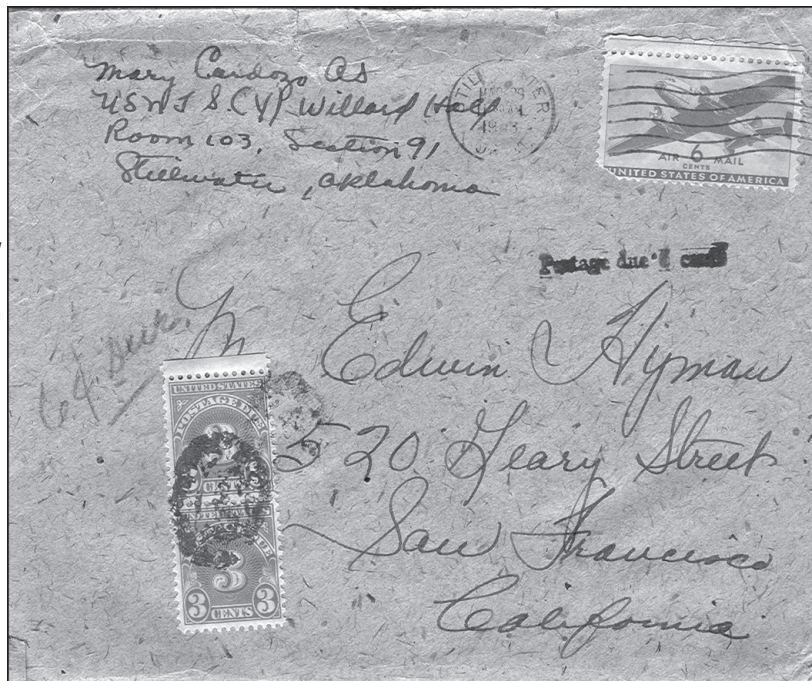 Mary Cardozo AS
USNTS (Y) Willard Hall
Room 103, Section 91
Stillwater, Oklahoma
STILLWATER
1943
AIR 6 MAIL
CENTS
UNITED STATES OF AMERICA
Postage due cents
6¢ due
Mr Edwin Hyman
520 Geary Street
San Francisco
California
UNITED STATES
POSTAGE DUE
CENTS
UNITED STATES
3
3 CENTS 3